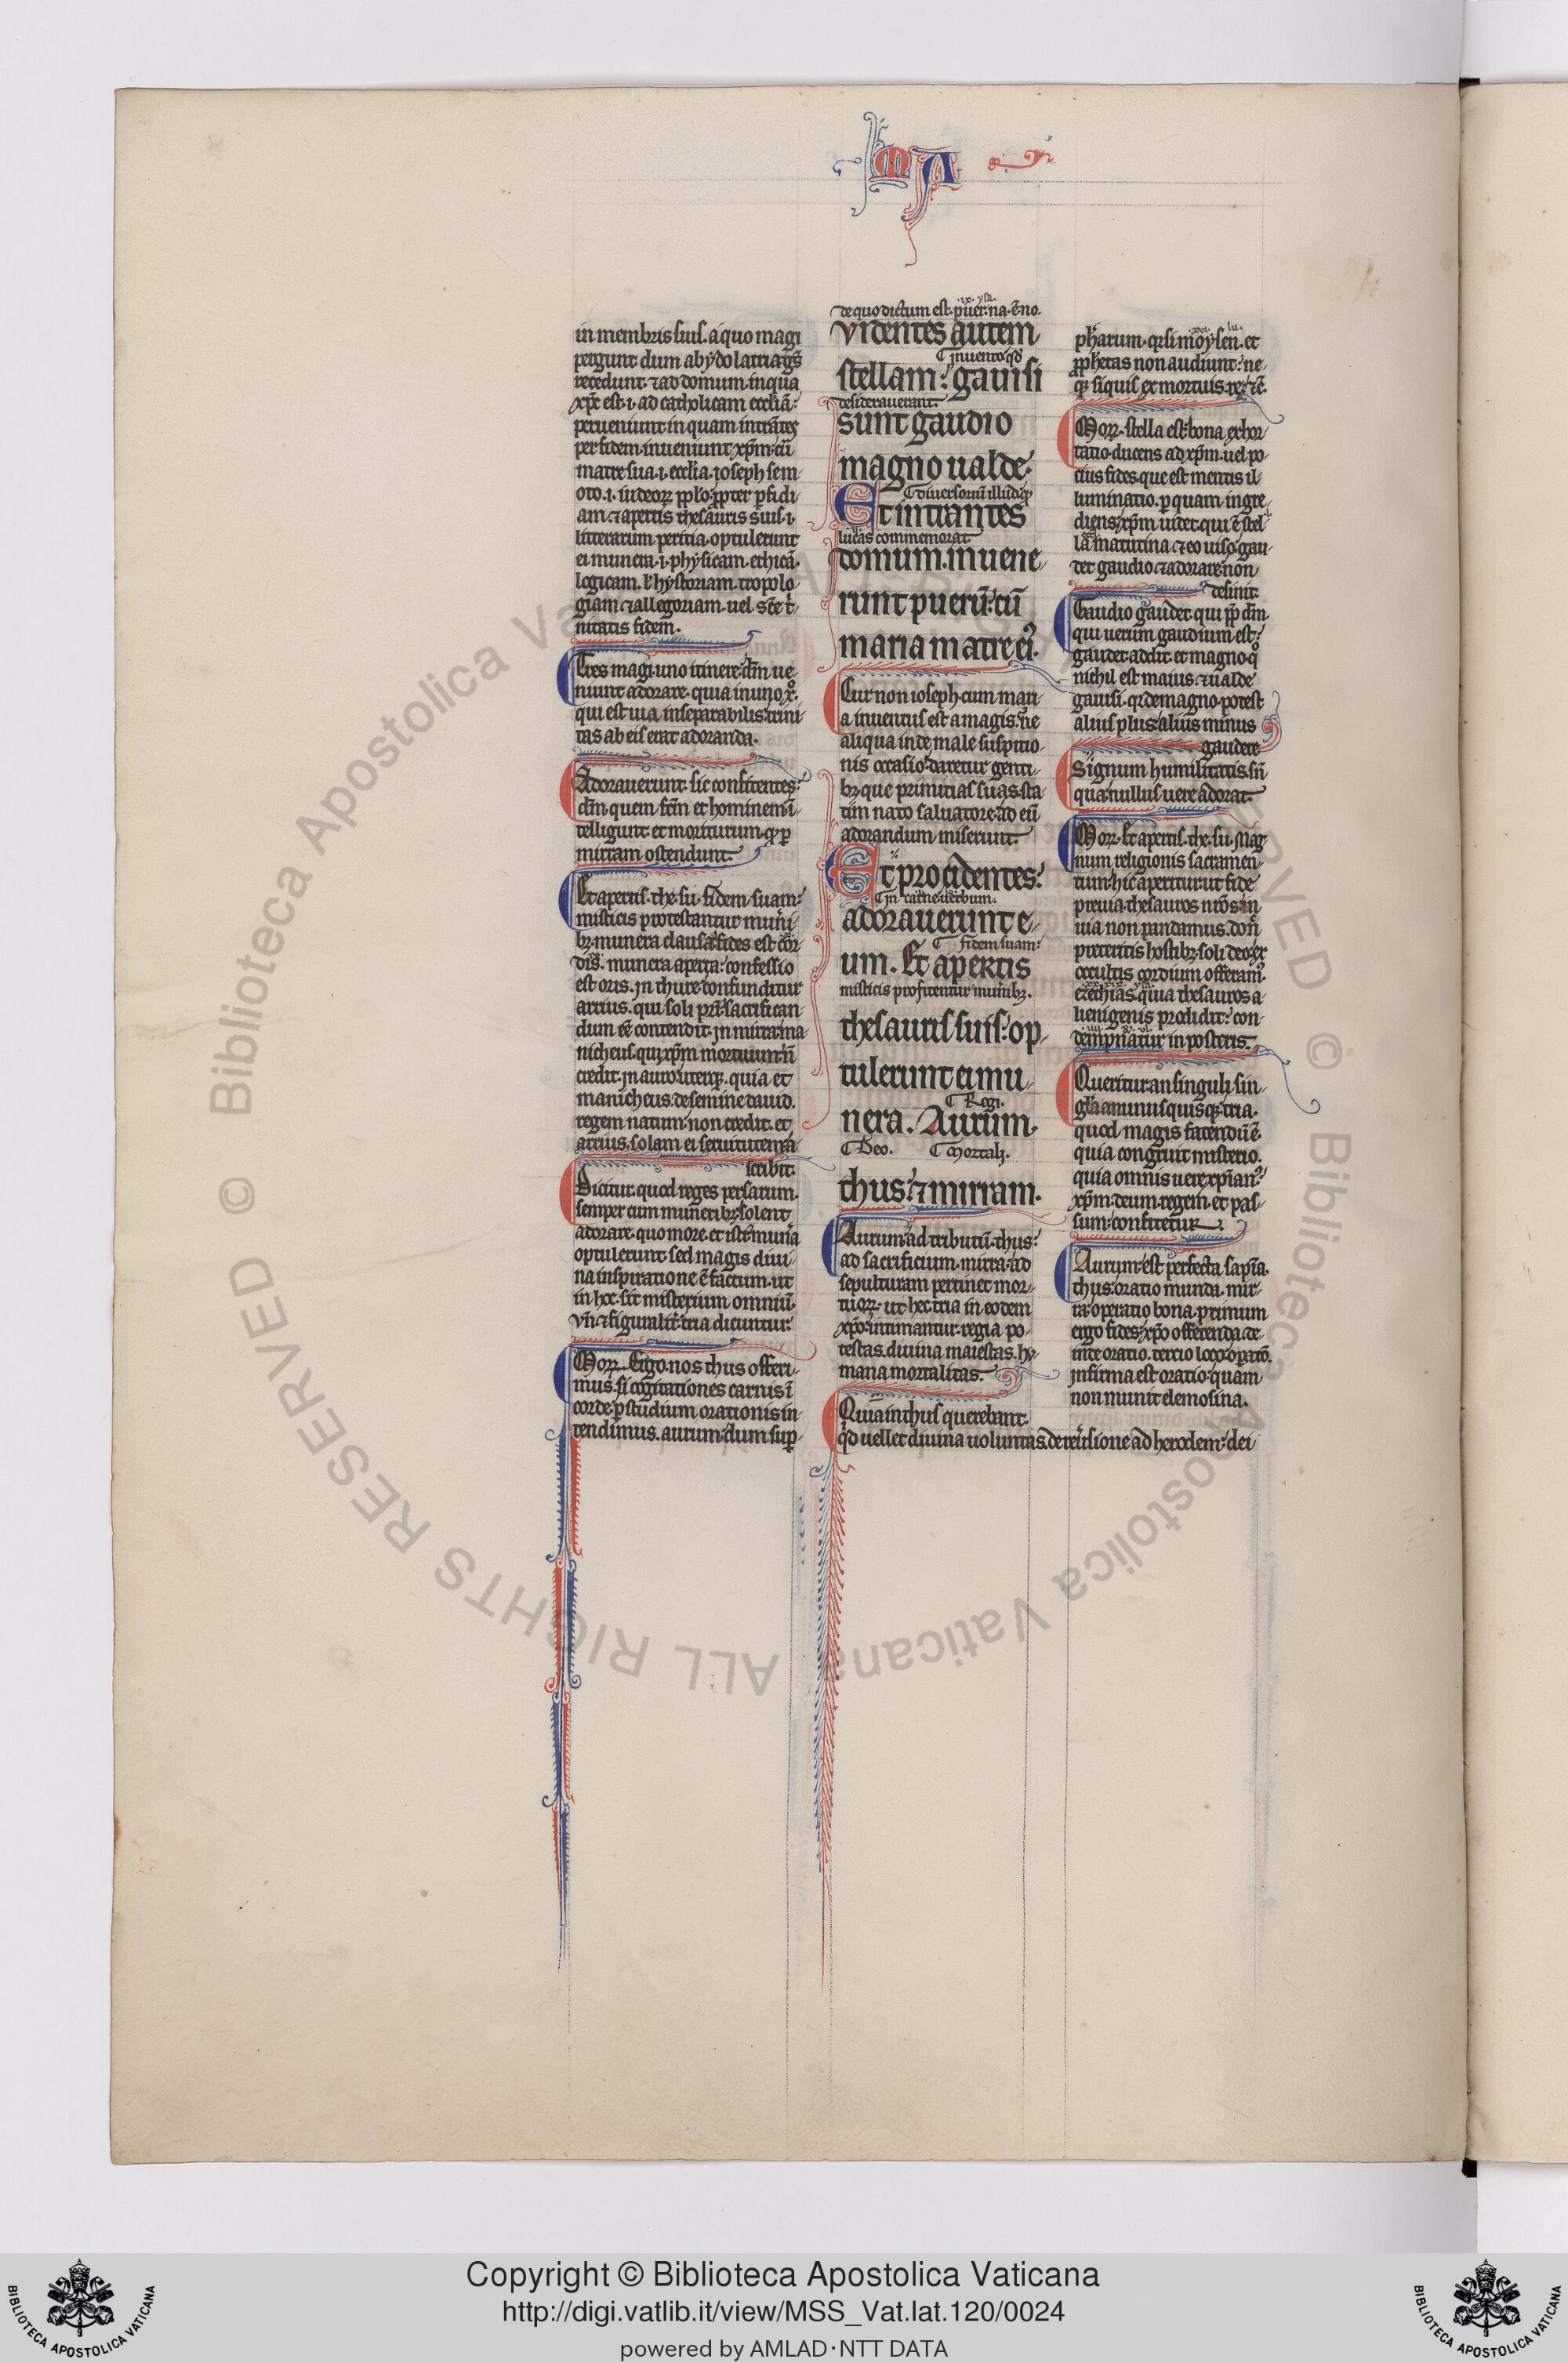 MA
in membris suis. a quo magi
pergunt dum ab ydolatria gn̄s
recedunt. ⁊ ad domum in qua
xp̄c est .i. ad catholicam eccl̄iā:
perueniunt in quam intrātes
per fidem inueniunt xp̄m. cū
matre sua .i. eccl̄ia. ioseph sem-
oto .i. iudeoꝝ pplo. ꝓpter ꝑfidi-
am. ⁊ apertis thesauris suis .i.
litterarum peritia. optulerunt
ei munera .i. physicam. ethicā.
logicam. l' hystoriam. tropolo-
giam ⁊ allegoriam. uel sc̄e t'-
nitatis fidem.
Tres magi. uno itinere dn̄m ue-
niunt adorare. quia in uno xº.
qui est uia. inseparabilis trini-
tas ab eis erat adoranda.
Adorauerunt. sic confitentes:
dn̄m quem
telligunt et moriturum. ꝙ ꝑ
mirram ostendunt.
Et apertis. the. su. fidem suam:
misticis protestantur muni-
bꝫ. munera clausa: fides est cor-
dis. munera aperta: confessio
est oris. In thure confunditur
arrius. qui soli pr̄i: sacrifican-
dum ēē contendit. In mirra: ma-
nicheus. qui xp̄m mortuum: n̄
credit. In auro: uterqꝫ. quia et
manicheus. de semine dauid.
regem natum: non credit. et
arrius. solam ei seruitutem: a-
scribit.
Dicitur. quod reges persarum.
semper cum muneribꝫ: solent
adorare. quo more. et isti: mun̄a
optulerunt. sed magis diui-
na inspiratione ē factum. ut
in hoc. sit misterium omniū.
vn̄ ⁊ figuralit': tria dicuntur.
Moꝝ. Ergo. nos thus offeri-
mus. si cogitationes carnis ī
corde. ꝑ studium orationis in-
tendimus. aurum: dum suꝑ-
de quo dictum est. puer. na. ē no.
.ix. ysa.
Videntes autem
inuento qd̄
stellam: gauisi
desiderauerant.
sunt gaudio
magno ualde.
diuersoriū illud qd̄
Et intrantes
lucas commemorat
domum. inuene-
runt puerū: cū
maria matre ei'.
Cur non ioseph. cum mari-
a inuentus est a magis. ne
aliqua inde male suspitio-
nis occasio: daretur genti-
bꝫ. que primitias suas sta-
tim nato saluatore: ad eū
adorandum miserunt.
Et procidentes:
in carne uerbum.
adorauerunt e-
fidem suam:
um. Et apertis
misticis profitentur munibꝫ.
thesauris suis: op-
tulerunt ei mu-
Regi.
nera. Aurum.
Deo. Mortali.
thus: ⁊ mirram.
Aurum: ad tributū. thus:
ad sacrificium. mirra: ad
sepulturam pertinet mor-
tuoꝝ. ut hec tria in eodem
xp̄o: intimantur. regia po-
testas. diuina maiestas. hu-
mana mortalitas.
Quia in thus querebant.
qd̄ uellet diuina uoluntas. de reu'sione ad herodem: dei
pharum. q̄si moysen. et
.xvi. lu.
ꝓphetas non audiunt: ne-
qꝫ si quis ex mortuis. re. ⁊c̄.
Moꝝ. stella est: bona exhor-
tatio. ducens ad xp̄m. uel po-
cius fides. que est mentis il-
luminatio. ꝑ quam ingre-
diens xp̄m uidet. qui ē stel-
la matutina. ⁊ eo uiso. gau-
det gaudio. ⁊ adorare non
desinit.
Gaudio gaudet. qui ꝓp dn̄m.
qui uerum gaudium est:
gaudet. addit. et magno. qº
nichil est maius. ⁊ ualde
gauisi. q̄ de magno. potest
alius plus: alius minus
gaudere
Signum humilitatis. sn̄
qua: nullus uere adorat.
Moꝝ. Et apertis. the. su. Mag-
num religionis sacramen-
tum: hic aperitur: ut fide
preuia. thesauros nr̄os: in
uia non pandamus. don̄
preteritis hostibꝫ: soli deo. ex
occultis cordium offeram'.
ezechias. quia thesauros a-
lienigenis prodidit: con-
dempnatur in posteris.
Queritur an singuli: sin-
gl'a. an unusquisqꝫ. tria.
quod magis fatendū ē.
quia congruit misterio.
quia omnis uere xp̄ian':
xp̄m. deum. regem. et pas-
sum: confitetur.
Aurum: est perfecta sapīa.
thus: oratio munda. mir-
ra: operatio bona. primum
ergo fides: xp̄o offerenda. de-
inde oratio. tercio loco. oꝑatō.
Infirma est oratio. quam
non munit elemosina.
© Biblioteca Apostolica Vaticana ALL RIGHTS RESERVED
Copyright © Biblioteca Apostolica Vaticana
http://digi.vatlib.it/view/MSS_Vat.lat.120/0024
powered by AMLAD·NTT DATA
BIBLIOTECA APOSTOLICA VATICANA
BIBLIOTECA APOSTOLICA VATICANA